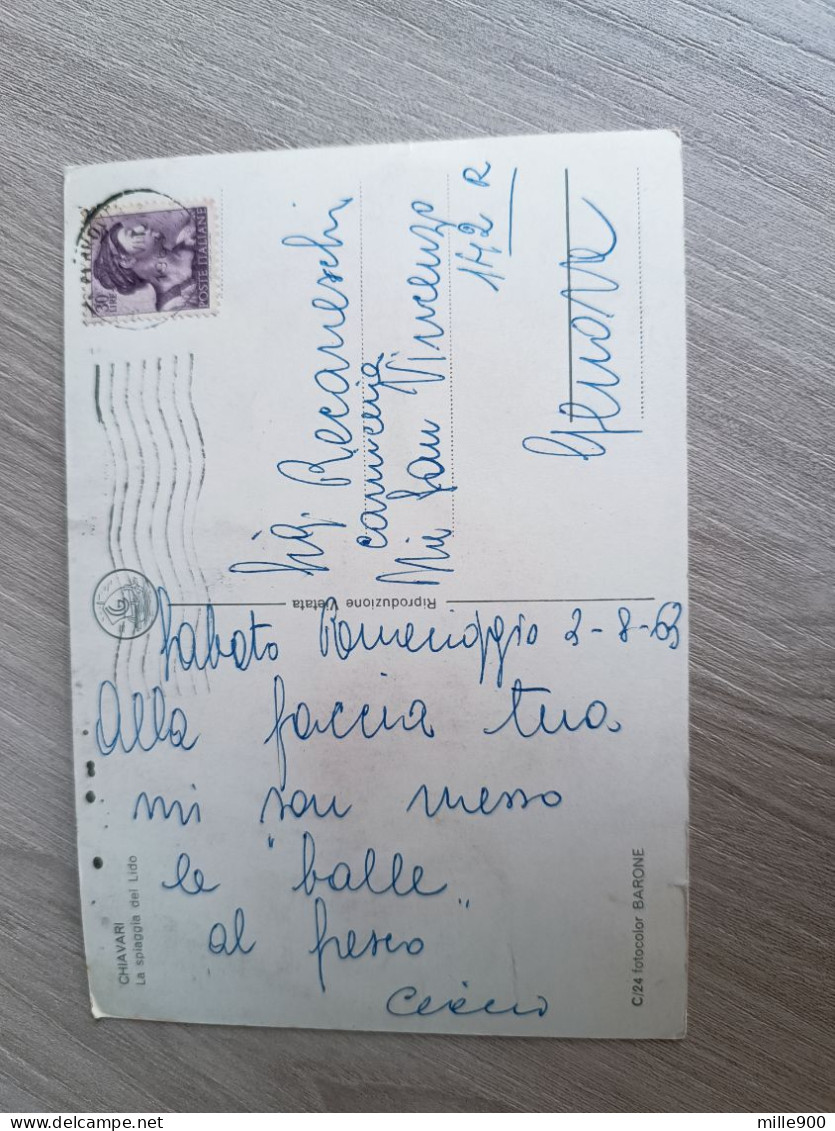 Sabato Pomeriggio 3-8-63
Alla faccia tua
mi son messo
le "balle"
al fresco"
CHIAVARI
La spiaggia del Lido
C/24 fotocolor BARONE
Riproduzione Vietata
30
LIRE
POSTE ITALIANE
Sig. Recaneschi
camiceria
Via San Vincenzo
142 R
Genova
mille900